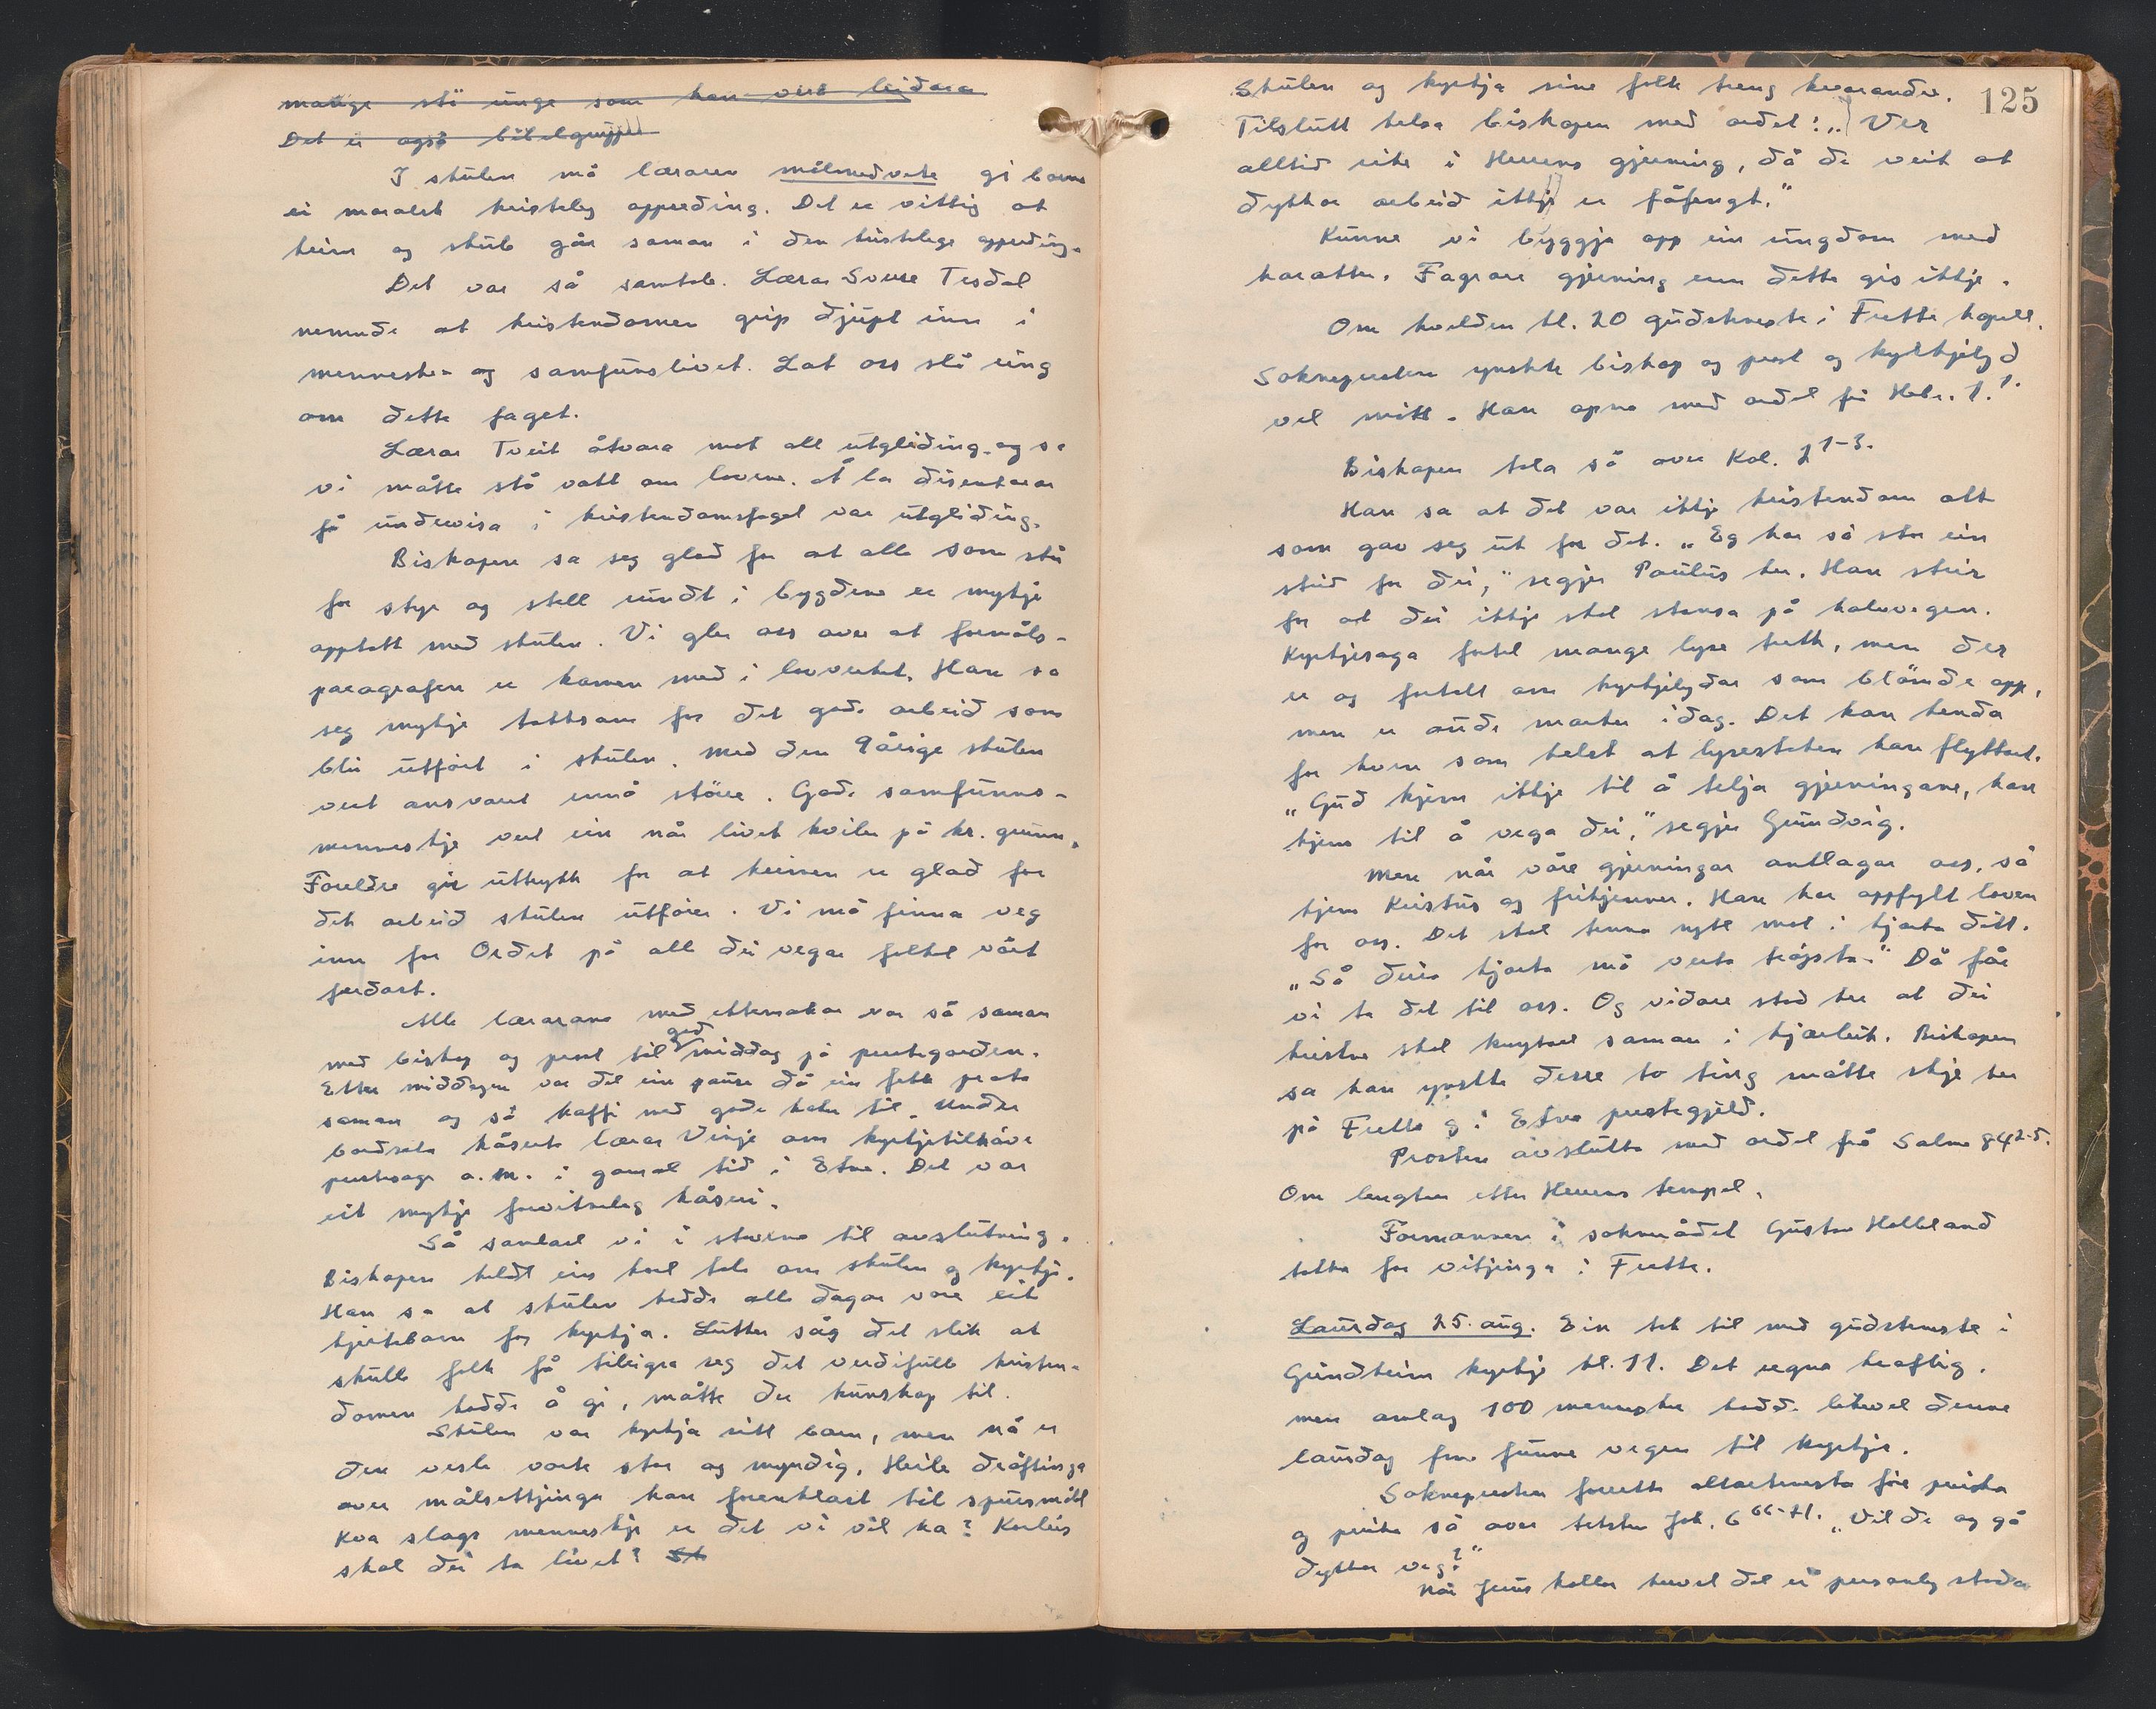 mange sli unge som kan vera leidara
Det er også bibelgrupper
I skulen må læraren målmedvete gi borna
ei moralsk kristeleg oppseding. Det er viktig at
heim og skule går saman i den kristelege oppseding.
Det var så samtale. Lærar Sverre Tesdal
nemnde at kristendomen grip djupt inn i
menneske- og samfunslivet. Lat oss slå ring
om dette faget.
Lærar Tveit åtvara mot all utgliding og sa
vi måtte stå vakt om lovene. Å la disentarar
få undervisa i kristendomsfaget var utgliding.
Biskopen sa seg glad for at alle som stå
for styr og stell rundt i bygdene er mykje
opptatt med skulen. Vi gler oss over at formåls-
paragrafen er komen med i lovverket. Han sa
seg mykje takksam for det gode arbeid som
blir utført i skulen. Med den 9årige skulen
vert ansvaret ennå större. Gode samfunns-
menneskje vert ein når livet kviler på kr. grunn.
Foreldre gir uttrykk for at heimen er glad for
det arbeid skulen utfører. Vi må finna veg
inn for Ordet på alle dei vegar folket vårt
ferdast.
Alle lærarane med ektemakar var så saman
med biskop og prost til god middag på prestegarden.
Etter middagen var det ein pause då ein fekk prata
saman og så kaffi med gode kaker til. Under
bordseta kåserte lærar Vinje om kyrkjetilhøve
prestesoge o.m. i gamal tid i Etne. Det var
eit mykje forvitneleg kåseri.
Så samlast vi i stovene til avslutning.
Biskopen heldt ein kort tale om skulen og kyrkja.
Han sa at skulen hadde alle dagar vore eit
hjartebarn for kyrkja. Luther såg det slik at
skulle folk få tileigna seg det verdifulle kristen-
domen hadde å gi, måtte der kunskap til.
Skulen var kyrkja sitt barn, men nå er
den vesle vorte stor og myndig. Heile dröftinga
over målsettjinga kan forenklast til spursmålet
Kva slags menneskje er det vi vil ha? Korleis
skal dei ta livet? Sk
125
Skulen og kyrkja sine folk treng kvarandre.
Tilslutt helsa biskopen med ordet: „Ver
alltid rike i Herrens gjerning, då de veit at
dykkar arbeid ikkje er fåfengt."
Kunne vi byggja opp ein ungdom med
karakter. Fagrare gjerning enn dette gis ikkje.
Om kvelden kl. 20 gudsteneste i Frette kapell.
Soknepresten ynskte biskop og prost og kyrkjelyd
vel mött. Han opna med ordet frå Hebr. 1.1.
Biskopen tala så over Kol. 2 1-3.
Han sa at det var ikkje kristendom alt
som gav seg ut for det. „Eg har så stor ein
strid for dei," segjer Paulus her. Han strir
for at dei ikkje skal stansa på halvvegen.
Kyrkjesoga fortel mange lyse trekk, men der
er og fortalt om kyrkjelydar som blömde opp,
men er aude marker idag. Det kan henda
for kven som helst at lysestaken kan flyttast.
„Gud kjem ikkje til å telja gjerningane, han
kjem til å vega dei," segjer Grundvig.
Men når våre gjerningar anklagar oss, så
kjem Kristus og frikjenner. Han har oppfylt loven
for oss. Det skal tenna nytt mot i hjarta ditt.
„Så deira hjarta må verta trøysta." Då får
vi ta det til oss. Og vidare stod her at dei
kristne skal knytast saman i kjærleik. Biskopen
sa han ynskte desse to ting måtte skje her
på Frette og i Etne prestegjeld.
Prosten avslutta med ordet frå Salme 84 2-5.
Om lengten etter Herrens tempel.
Formannen i soknerådet Gustav Helleland
takka for vitjinga i Frette.
Laurdag 25. aug. Ein tok til med gudsteneste i
Grindheim kyrkje kl. 11. Det regna kraftig.
men omlag 100 menneske hadde likevel denne
laurdag fm funne vegen til kyrkja.
Soknepresten forretta altartenesta føre preika
og preika så over teksten Joh. 6 66-71. „Vil de og gå
dykkar veg?"
Når Jesus kallar krevst det ei personleg stode